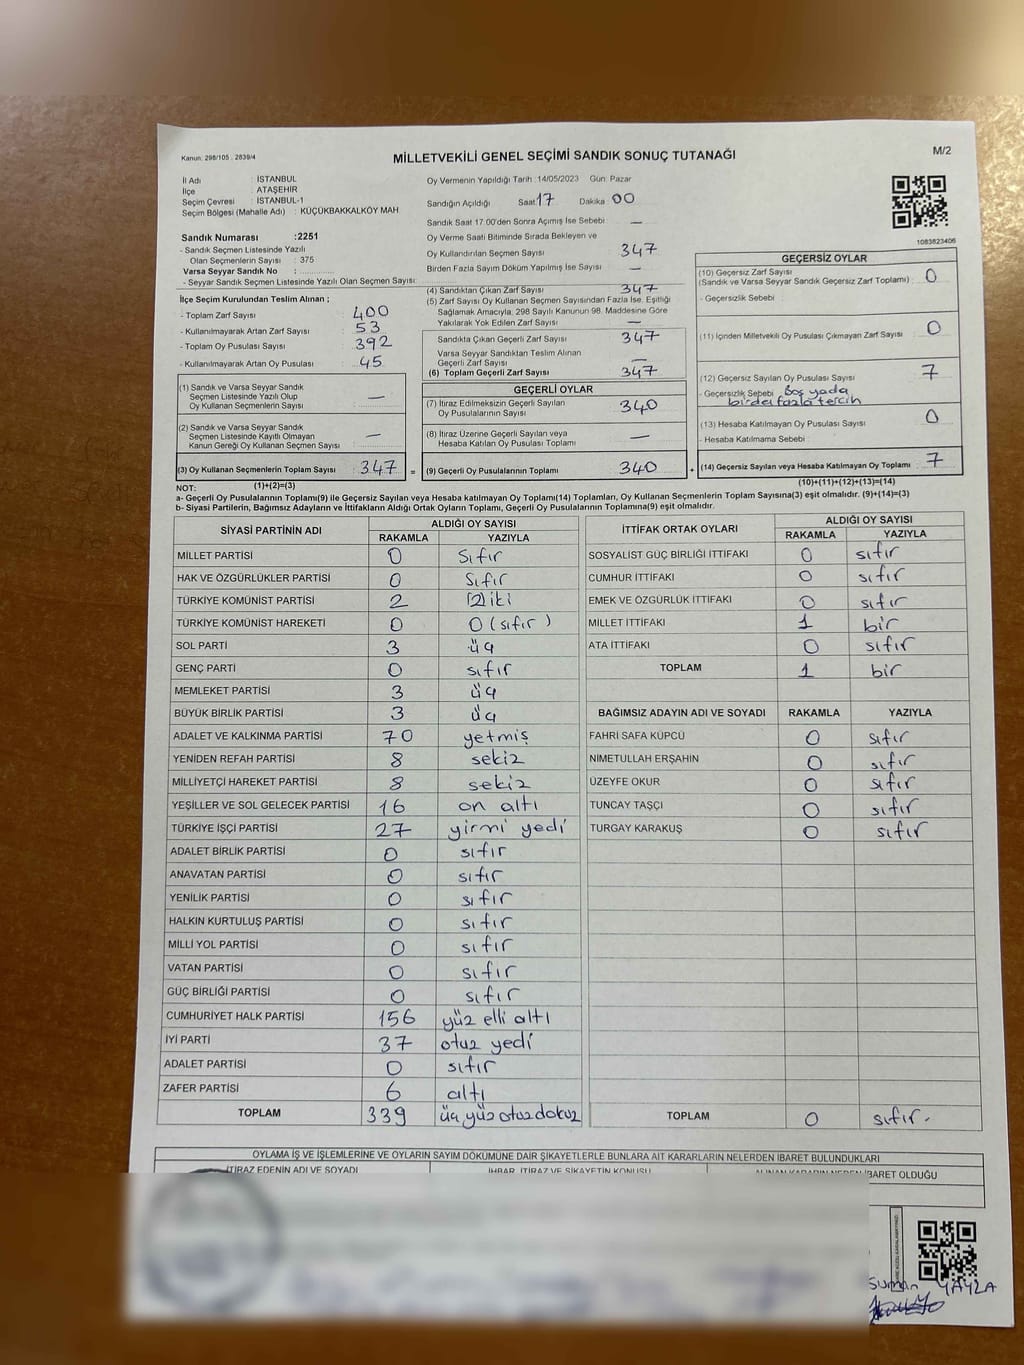 Kanun: 298/105 : 2839/4
MİLLETVEKİLİ GENEL SEÇİMİ SANDIK SONUÇ TUTANAĞI
M/2
İl Adı : İSTANBUL
İlçe : ATAŞEHİR
Seçim Çevresi : İSTANBUL-1
Seçim Bölgesi (Mahalle Adı) : KÜÇÜKBAKKALKÖY MAH.
Oy Vermenin Yapıldığı Tarih :14/05/2023 Gün: Pazar
Sandığın Açıldığı Saat 17 Dakika 00
Sandık Saat 17:00'den Sonra Açılmış İse Sebebi: —
Sandık Numarası :2251
- Sandık Seçmen Listesinde Yazılı
Olan Seçmenlerin Sayısı : 375
Varsa Seyyar Sandık No :
- Seyyar Sandık Seçmen Listesinde Yazılı Olan Seçmen Sayısı:
Oy Verme Saati Bitiminde Sırada Bekleyen ve
Oy Kullandırılan Seçmen Sayısı 347
Birden Fazla Sayım Döküm Yapılmış İse Sayısı —
1083823406
İlçe Seçim Kurulundan Teslim Alınan ;
- Toplam Zarf Sayısı : 400
- Kullanılmayarak Artan Zarf Sayısı : 53
- Toplam Oy Pusulası Sayısı : 392
- Kullanılmayarak Artan Oy Pusulası : 45
(4) Sandıktan Çıkan Zarf Sayısı 347
(5) Zarf Sayısı Oy Kullanan Seçmen Sayısından Fazla İse, Eşitliği
Sağlamak Amacıyla, 298 Sayılı Kanunun 98. Maddesine Göre
Yakılarak Yok Edilen Zarf Sayısı —
Sandıkta Çıkan Geçerli Zarf Sayısı 347
Varsa Seyyar Sandıktan Teslim Alınan
Geçerli Zarf Sayısı —
(6) Toplam Geçerli Zarf Sayısı 347
(1) Sandık ve Varsa Seyyar Sandık
Seçmen Listesinde Yazılı Olup
Oy Kullanan Seçmenlerin Sayısı : —
(2) Sandık ve Varsa Seyyar Sandık
Seçmen Listesinde Kayıtlı Olmayan
Kanun Gereği Oy Kullanan Seçmen Sayısı : —
(3) Oy Kullanan Seçmenlerin Toplam Sayısı : 347
(1)+(2)=(3)
GEÇERLİ OYLAR
(7) İtiraz Edilmeksizin Geçerli Sayılan
Oy Pusulalarının Sayısı 340
(8) İtiraz Üzerine Geçerli Sayılan veya
Hesaba Katılan Oy Pusulası Toplamı —
= (9) Geçerli Oy Pusulalarının Toplamı 340 +
GEÇERSİZ OYLAR
(10) Geçersiz Zarf Sayısı
(Sandık ve Varsa Seyyar Sandık Geçersiz Zarf Toplamı) : 0
- Geçersizlik Sebebi :
(11) İçinden Milletvekili Oy Pusulası Çıkmayan Zarf Sayısı : 0
(12) Geçersiz Sayılan Oy Pusulası Sayısı : 7
- Geçersizlik Sebebi : Boş yada
birden fazla tercih
(13) Hesaba Katılmayan Oy Pusulası Sayısı : 0
- Hesaba Katılmama Sebebi :
(14) Geçersiz Sayılan veya Hesaba Katılmayan Oy Toplamı : 7
(10)+(11)+(12)+(13)=(14)
NOT:
a- Geçerli Oy Pusulalarının Toplamı(9) ile Geçersiz Sayılan veya Hesaba katılmayan Oy Toplamı(14) Toplamları, Oy Kullanan Seçmenlerin Toplam Sayısına(3) eşit olmalıdır. (9)+(14)=(3)
b- Siyasi Partilerin, Bağımsız Adayların ve İttifakların Aldığı Ortak Oyların Toplamı, Geçerli Oy Pusulalarının Toplamına(9) eşit olmalıdır.
SİYASİ PARTİNİN ADI ALDIĞI OY SAYISI
RAKAMLA YAZIYLA
MİLLET PARTİSİ 0 Sıfır
HAK VE ÖZGÜRLÜKLER PARTİSİ 0 Sıfır
TÜRKİYE KOMÜNİST PARTİSİ 2 (2) iki
TÜRKİYE KOMÜNİST HAREKETİ 0 0 (sıfır)
SOL PARTİ 3 üç
GENÇ PARTİ 0 sıfır
MEMLEKET PARTİSİ 3 üç
BÜYÜK BİRLİK PARTİSİ 3 üç
ADALET VE KALKINMA PARTİSİ 70 yetmiş
YENİDEN REFAH PARTİSİ 8 sekiz
MİLLİYETÇİ HAREKET PARTİSİ 8 sekiz
YEŞİLLER VE SOL GELECEK PARTİSİ 16 on altı
TÜRKİYE İŞÇİ PARTİSİ 27 yirmi yedi
ADALET BİRLİK PARTİSİ 0 sıfır
ANAVATAN PARTİSİ 0 sıfır
YENİLİK PARTİSİ 0 sıfır
HALKIN KURTULUŞ PARTİSİ 0 sıfır
MİLLİ YOL PARTİSİ 0 sıfır
VATAN PARTİSİ 0 sıfır
GÜÇ BİRLİĞİ PARTİSİ 0 sıfır
CUMHURİYET HALK PARTİSİ 156 yüz elli altı
İYİ PARTİ 37 otuz yedi
ADALET PARTİSİ 0 sıfır
ZAFER PARTİSİ 6 altı
TOPLAM 339 üç yüz otuz dokuz
İTTİFAK ORTAK OYLARI ALDIĞI OY SAYISI
RAKAMLA YAZIYLA
SOSYALİST GÜÇ BİRLİĞİ İTTİFAKI 0 sıfır
CUMHUR İTTİFAKI 0 sıfır
EMEK VE ÖZGÜRLÜK İTTİFAKI 0 sıfır
MİLLET İTTİFAKI 1 bir
ATA İTTİFAKI 0 sıfır
TOPLAM 1 bir
BAĞIMSIZ ADAYIN ADI VE SOYADI RAKAMLA YAZIYLA
FAHRİ SAFA KÜPCÜ 0 sıfır
NİMETULLAH ERŞAHİN 0 sıfır
ÜZEYFE OKUR 0 sıfır
TUNCAY TAŞÇI 0 sıfır
TURGAY KARAKUŞ 0 sıfır
TOPLAM 0 sıfır.
OYLAMA İŞ VE İŞLEMLERİNE VE OYLARIN SAYIM DÖKÜMÜNE DAİR ŞİKAYETLERLE BUNLARA AİT KARARLARIN NELERDEN İBARET BULUNDUKLARI
İTİRAZ EDENİN ADI VE SOYADI İHBAR, İTİRAZ VE ŞİKAYETİN KONUSU ALINAN KARARIN NEDEN İBARET OLDUĞU
YAYLA